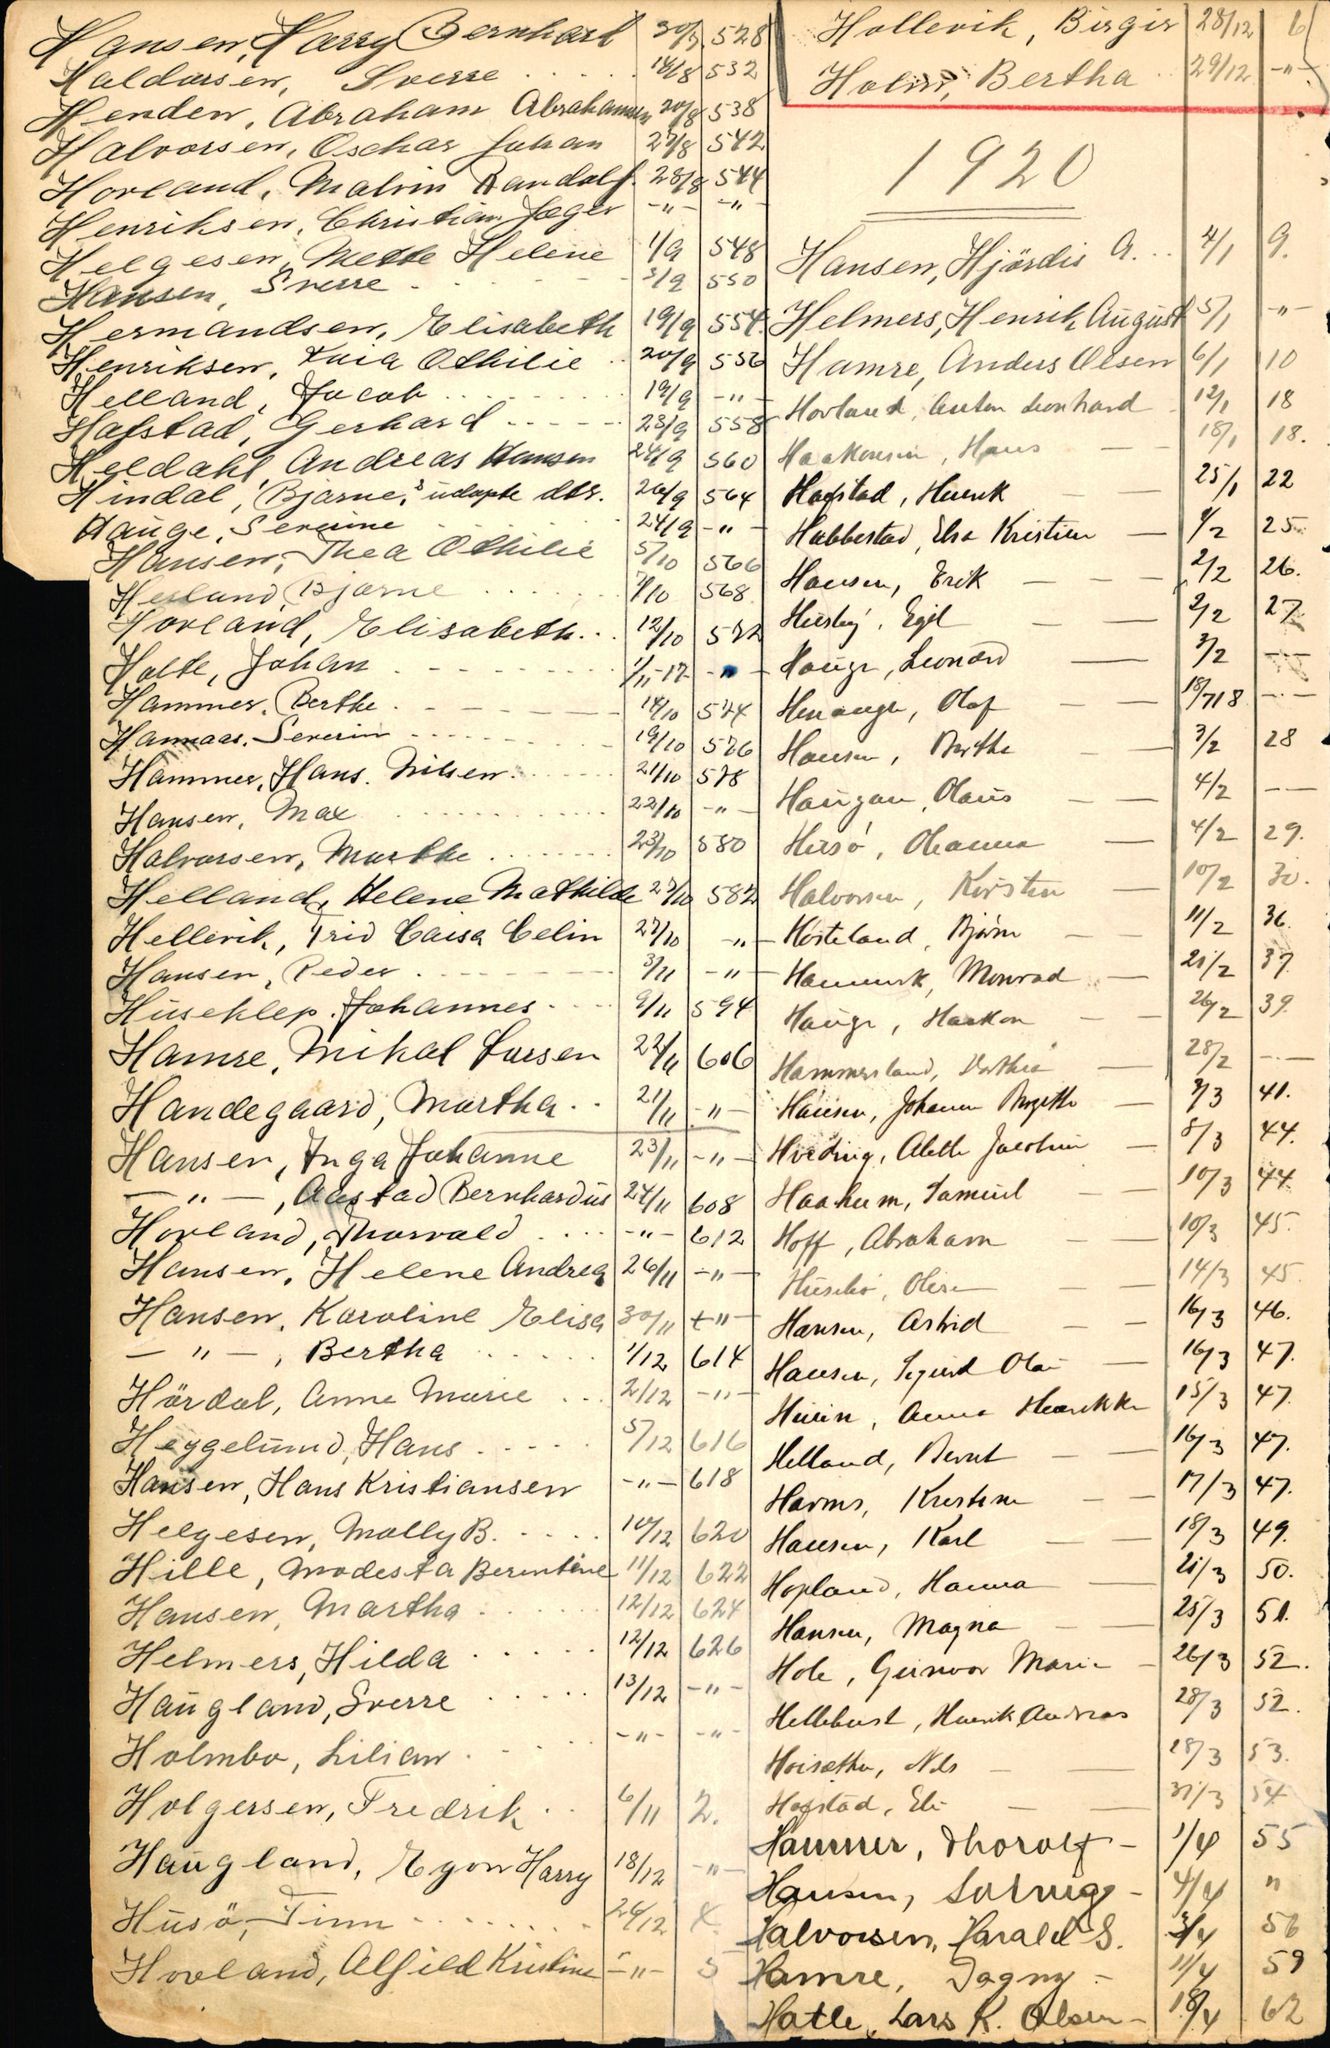 Hansen, Harry Bernhard 30/7 528
Haldorsen, Sverre 14/8 532
Henden, Abraham Abrahamsen 20/8 538
Halvorsen, Oschar Johan 27/8 542
Hovland, Malvin Randolf 28/8 544
Henriksen, Christian Jæger -"- -"-
Helgesen, Mette Helene 1/9 548
Hansen, Sverre 3/9 550
Hermandsen, Elisabeth 19/9 554
Henriksen, Othilie 20/9 556
Helland, Jacob 19/9 -"-
Hafstad, Gerhard 23/9 558
Heldahl Andreas Hansen 24/9 560
Hindal, "Bjarne," udøpte dtr. 26/9 564
Hauge, Severine 24/9 -"-
Hansen, Thea Othilie 5/10 566
Helland, Bjarne 7/10 568
Hovland, Elisabeth 12/10 572
Holte, Johan 1/11-17 -"-
Hammer, Berthe 14/10 574
Hannaas, Severin 19/10 576
Hammer, Hans Nilsen 21/10 578
Hansen, Max 22/10 -"-
Halvorsen, Marthe 23/10 580
Helland, Helene Mathilde 27/10 582
Hellevik, Caisa Celin 27/10 -"-
Hansen, Peder 3/11 -"-
Huseklep, Johannes 9/11 594
Hamre, Mikal Larsen 22/11 606
Handegaard, Martha 21/11 -"-
Hansen, Inga Johanne 23/11 -"-
-"-, Aastad Bernhardus 24/11 608
Hovland, Thorvald -"- 612
Hansen, Helene Andrea 26/11 -"-
Hansen, Karoline Elisa 30/11 -"-
-"-, Bertha 1/12 614
Hördal, Anne Marie 2/12 -"-
Heggelund, Hans 5/12 616
Hansen, Hans Kristiansen -"- 618
Helgesen, Molly B. 10/12 620
Hille, Modesta Berentine 11/12 622
Hansen, Martha 12/12 624
Helmers, Hilda 12/12 626
Haugland, Sverre 13/12 -"-
Holmbo, Lilian -"- -"-
Holgersen, Fredrik 6/11 2.
Haugland, Egon Harry 18/12 -"-
Husö, Finn 24/12 4.
Hovland, Alfild Kristine -"- 5
Hollevik, Birgir 28/12 6
Holm, Bertha 29/12 -"-
1920
Hansen, Hjördis A. 4/1 9.
Helmers, Henrik August 5/1 -"-
Hamre, Anders Olsen 6/1 10
Hovland, Anton Leonhard 12/1 18
Haakonsen, Hans 18/1 18.
Hafstad, Henrik 25/1 22
Habbestad, Elsa Kristine 1/2 25
Hansen, Erik 2/2 26.
Husby, Egil 2/2 27
Hauge, Leonard 3/2 --
Henauge, Olaf 18/718 --
Hansen, Berthe 3/2 28
Haugan, Olaus 4/2 --
Husö, Oleanna 4/2 29.
Halvorsen, Kirsten 10/2 30.
Hosteland, Bjørn 11/2 36.
Hammerik, Monrad 21/2 37.
Hauge, Haakon 26/2 39.
Hammersland, Dorthea 28/2 --
Hansen, Johanne Birgitte 7/3 41.
Hviding, Aleth Jacobine 8/3 44.
Haaheim, Samuel 10/3 44.
Hoff, Abraham 10/3 45.
Husebö, Oline 14/3 45.
Hansen, Astrid 16/3 46.
Hansen, Sigurd Olai 16/3 47.
Anna Henrikke 15/3 47.
Helland, Bernt 16/3 47.
Harms, Kristine 17/3 47.
Hansen, Karl 18/3 49.
Hopland, Hanna 21/3 50.
Hansen, Magna 25/3 51.
Hole, Gunvor Marie 26/3 52.
Hellebust, Henrik Andreas 28/3 52.
Hoisæther, Nils 28/3 53.
Hafstad, Eli 31/3 54
Hammer, Thorolf 1/4 55
Hansen, Solveig 4/4 "
Halvorsen, Harald S. 3/4 56
Hamre, Dagny 11/4 59
Hatle, Lars K. Olsen 18/4 62